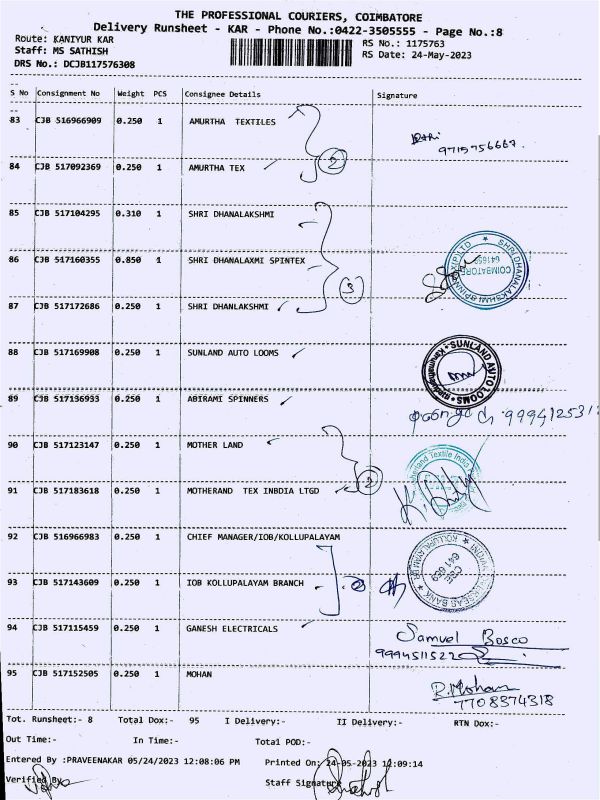 THE PROFESSIONAL COURIERS, COIMBATORE
Delivery Runsheet - KAR - Phone No.:0422-3505555 - Page No.:8
Route: KANIYUR KAR RS No.: 1175763
Staff: MS SATHISH RS Date: 24-May-2023
DRS No.: DCJB117576308
S No Consignment No Weight PCS Consignee Details Signature
83 CJB 516966909 0.250 1 AMURTHA TEXTILES
9715756667.
2
84 CJB 517092369 0.250 1 AMURTHA TEX
85 CJB 517104295 0.310 1 SHRI DHANALAKSHMI
86 CJB 517160355 0.850 1 SHRI DHANALAXMI SPINTEX
SHRI DHANALAKSHMI SPINN (P) LTD COIMBATORE
3
87 CJB 517172686 0.250 1 SHRI DHANLAKSHMI
88 CJB 517169908 0.250 1 SUNLAND AUTO LOOMS
SUNLAND AUTO LOOMS
89 CJB 517136933 0.250 1 ABIRAMI SPINNERS
999412531
90 CJB 517123147 0.250 1 MOTHER LAND
Textile India
2
91 CJB 517183618 0.250 1 MOTHERAND TEX INBDIA LTGD
92 CJB 516966983 0.250 1 CHIEF MANAGER/IOB/KOLLUPALAYAM
OVERSEAS BANK KOLLUPALAYAM BR CBE
93 CJB 517143609 0.250 1 IOB KOLLUPALAYAM BRANCH
2
94 CJB 517115459 0.250 1 GANESH ELECTRICALS
Samuel Bosco
9994511522
95 CJB 517152505 0.250 1 MOHAN
R.Mohan
7708374318
Tot. Runsheet:- 8 Total Dox:- 95 I Delivery:- II Delivery:- RTN Dox:-
Out Time:- In Time:- Total POD:-
Entered By :PRAVEENAKAR 05/24/2023 12:08:06 PM Printed On: 24-05-2023 12:09:14
Verified By Staff Signature